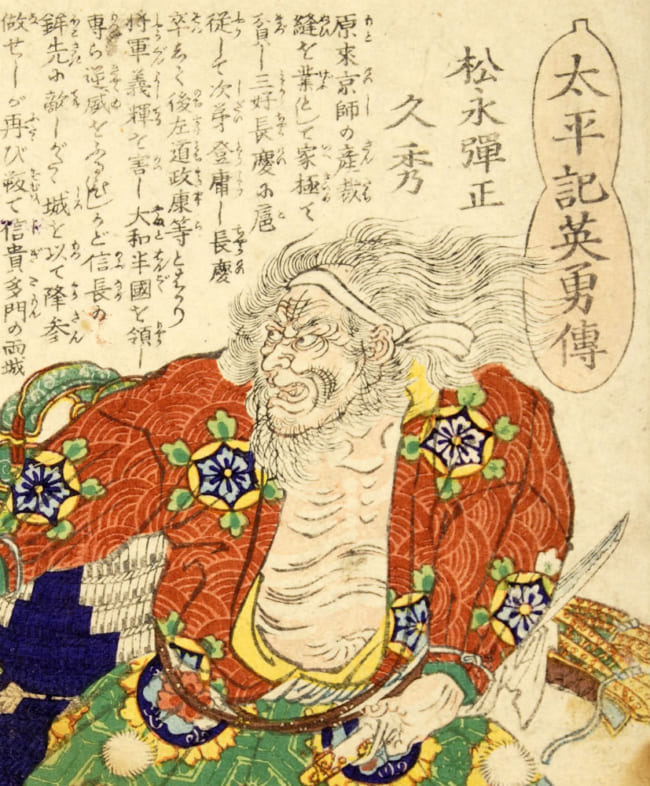 太平記英勇傳
松永彈正
久秀
原来京師の産裁
縫を業として家極て
貧し三好長慶に
従して次第登庸し長慶
卒して後左道政康等とはかり
将軍義輝を害し大和半國を領し
専ら逆威をふるひしかど信長の
鉾先に敵しがたく城を以て降参
做せしが再び叛て信貴多門の両城